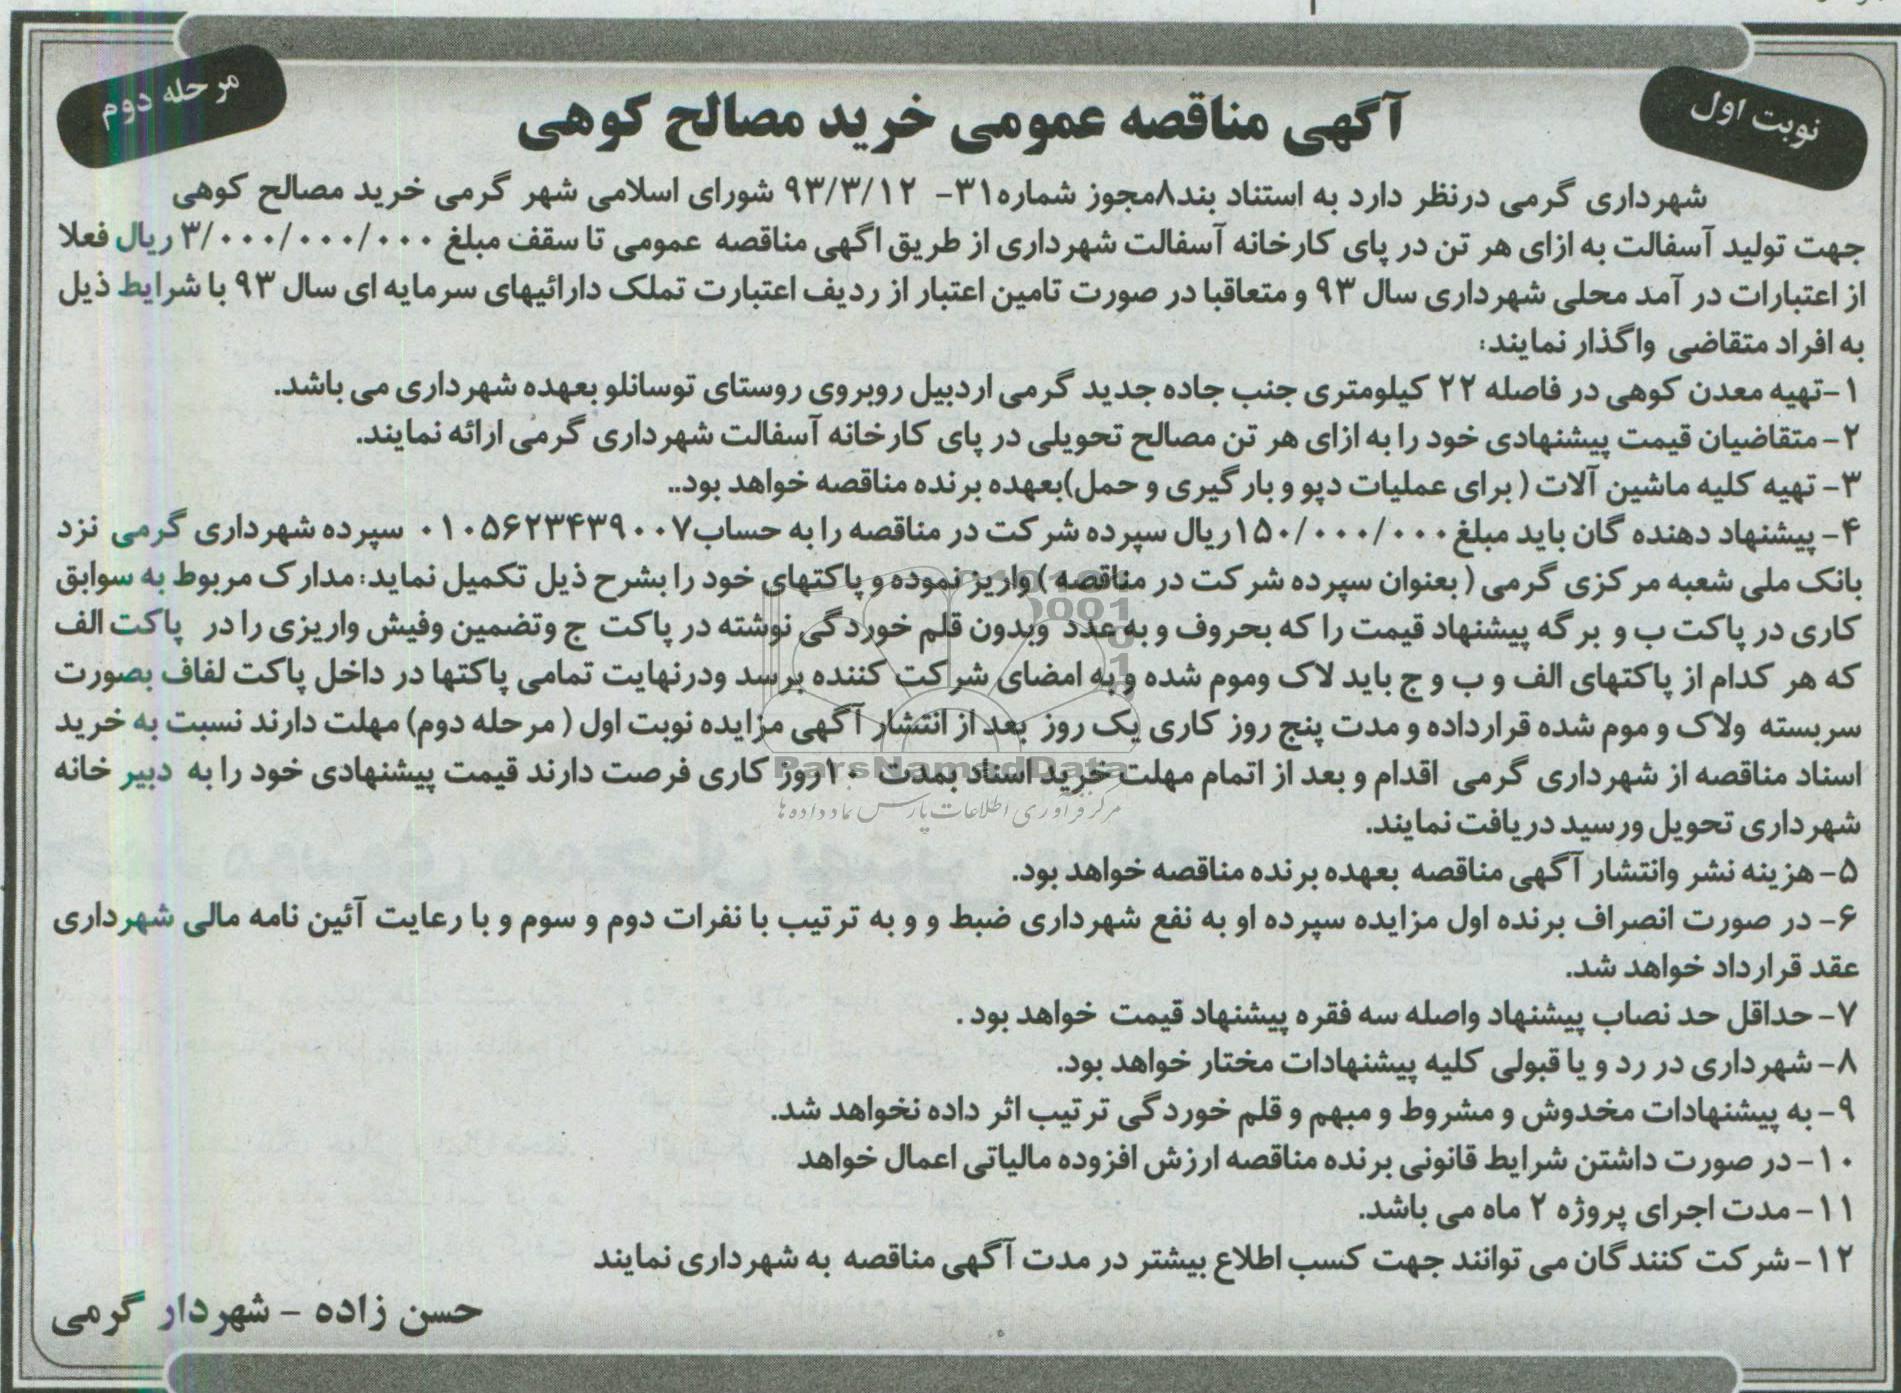 نوبت اول
مرحله دوم
آگهی مناقصه عمومی خرید مصالح کوهی
شهرداری گرمی درنظر دارد به استناد بند۸مجوز شماره۳۱- ۹۳/۳/۱۲ شورای اسلامی شهر گرمی خرید مصالح کوهی
جهت تولید آسفالت به ازای هر تن در پای کارخانه آسفالت شهرداری از طریق اگهی مناقصه عمومی تا سقف مبلغ ۳/۰۰۰/۰۰۰/۰۰۰ ریال فعلا
از اعتبارات در آمد محلی شهرداری سال ۹۳ و متعاقبا در صورت تامین اعتبار از ردیف اعتبارت تملک دارائیهای سرمایه ای سال ۹۳ با شرایط ذیل
به افراد متقاضی واگذار نمایند:
۱-تهیه معدن کوهی در فاصله ۲۲ کیلومتری جنب جاده جدید گرمی اردبیل روبروی روستای توسانلو بعهده شهرداری می باشد.
۲- متقاضیان قیمت پیشنهادی خود را به ازای هر تن مصالح تحویلی در پای کارخانه آسفالت شهرداری گرمی ارائه نمایند.
۳- تهیه کلیه ماشین آلات ( برای عملیات دپو و بارگیری و حمل)بعهده برنده مناقصه خواهد بود..
۴- پیشنهاد دهنده گان باید مبلغ۱۵۰/۰۰۰/۰۰۰ریال سپرده شرکت در مناقصه را به حساب۰۱۰۵۶۲۳۴۳۹۰۰۷ سپرده شهرداری گرمی نزد
بانک ملی شعبه مرکزی گرمی ( بعنوان سپرده شرکت در مناقصه ) واریز نموده و پاکتهای خود را بشرح ذیل تکمیل نماید: مدارک مربوط به سوابق
کاری در پاکت ب و برگه پیشنهاد قیمت را که بحروف و به عدد وبدون قلم خوردگی نوشته در پاکت ج وتضمین وفیش واریزی را در پاکت الف
که هر کدام از پاکتهای الف و ب و ج باید لاک وموم شده و به امضای شرکت کننده برسد ودرنهایت تمامی پاکتها در داخل پاکت لفاف بصورت
سربسته ولاک و موم شده قرارداده و مدت پنج روز کاری یک روز بعد از انتشار آگهی مزایده نوبت اول ( مرحله دوم) مهلت دارند نسبت به خرید
اسناد مناقصه از شهرداری گرمی اقدام و بعد از اتمام مهلت خرید اسناد بمدت ۱۰روز کاری فرصت دارند قیمت پیشنهادی خود را به دبیر خانه
شهرداری تحویل ورسید دریافت نمایند.
۵- هزینه نشر وانتشار آگهی مناقصه بعهده برنده مناقصه خواهد بود.
۶- در صورت انصراف برنده اول مزایده سپرده او به نفع شهرداری ضبط و و به ترتیب با نفرات دوم و سوم و با رعایت آئین نامه مالی شهرداری
عقد قرارداد خواهد شد.
۷- حداقل حد نصاب پیشنهاد واصله سه فقره پیشنهاد قیمت خواهد بود .
۸- شهرداری در رد و یا قبولی کلیه پیشنهادات مختار خواهد بود.
۹- به پیشنهادات مخدوش و مشروط و مبهم و قلم خوردگی ترتیب اثر داده نخواهد شد.
۱۰- در صورت داشتن شرایط قانونی برنده مناقصه ارزش افزوده مالیاتی اعمال خواهد
۱۱- مدت اجرای پروژه ۲ ماه می باشد.
۱۲- شرکت کنندگان می توانند جهت کسب اطلاع بیشتر در مدت آگهی مناقصه به شهرداری نمایند
حسن زاده - شهردار گرمی
ParsNamadData
مرکز فرآوری اطلاعات پارس نماد داده ها